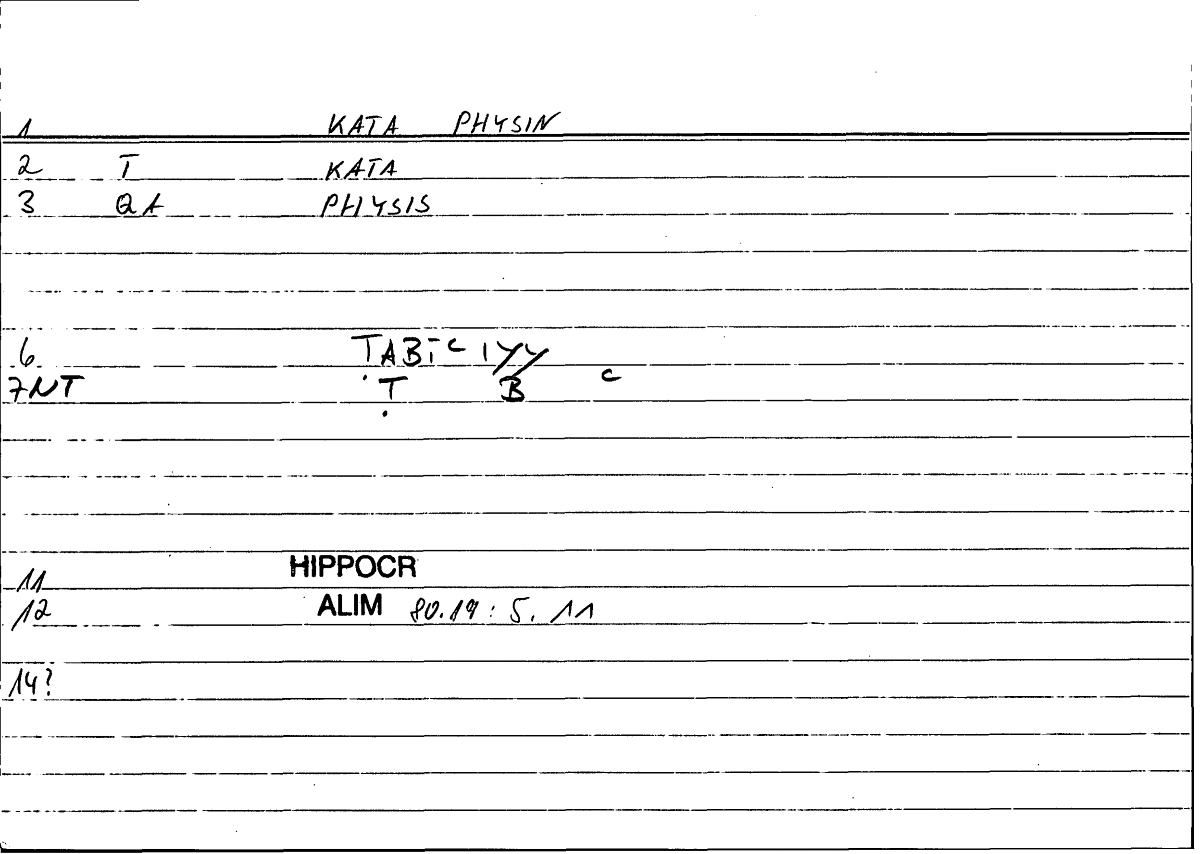 1 KATA PHYSIN
2 T KATA
3 QA PHYSIS
6 ṬABĪʿIYY
7NT Ṭ B ʿ
11 HIPPOCR
12 ALIM 80.19 : 5. 11
14?